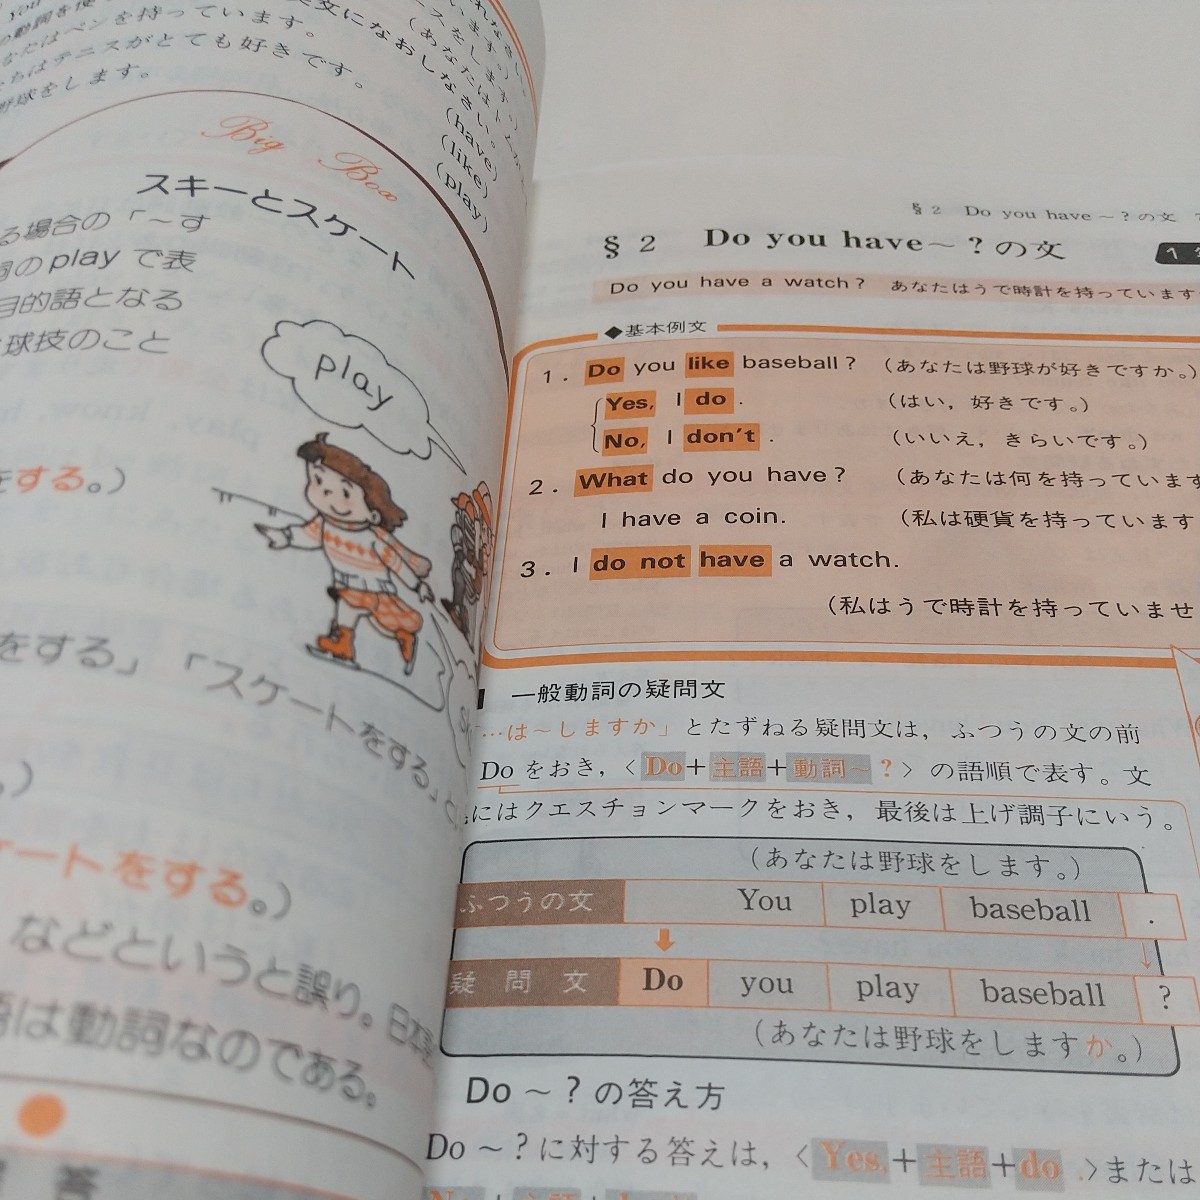 you
の動詞を使
なたはペンを持っています。
ちはテニスがとても好きです。
野球をします。
文になおしなさい。
(have)
(like)
(play)
Big Box
スキーとスケート
る場合の「～す
詞のplayで表
目的語となる
球技のこと
play
をする。)
をする」「スケートをする」
ケートをする。)
などというと誤り。日本
語は動詞なのである。
答
§2 Do you have～？の文
§2 Do you have～？の文
1
Do you have a watch? あなたはうで時計を持っています
◆基本例文
1. Do you like baseball? (あなたは野球が好きですか。)
Yes, I do. (はい，好きです。)
No, I don't. (いいえ，きらいです。)
2. What do you have? (あなたは何を持っています
I have a coin. (私は硬貨を持っています
3. I do not have a watch.
(私はうで時計を持っていませ
一般動詞の疑問文
「…は～しますか」とたずねる疑問文は，ふつうの文の前
Doをおき，〈Do＋主語＋動詞～？〉の語順で表す。文
にはクエスチョンマークをおき，最後は上げ調子にいう。
(あなたは野球をします。)
ふつうの文 You play baseball .
疑問文 Do you play baseball ?
(あなたは野球をしますか。)
Do～？の答え方
Do～？に対する答えは，〈Yes,＋主語＋do.〉または